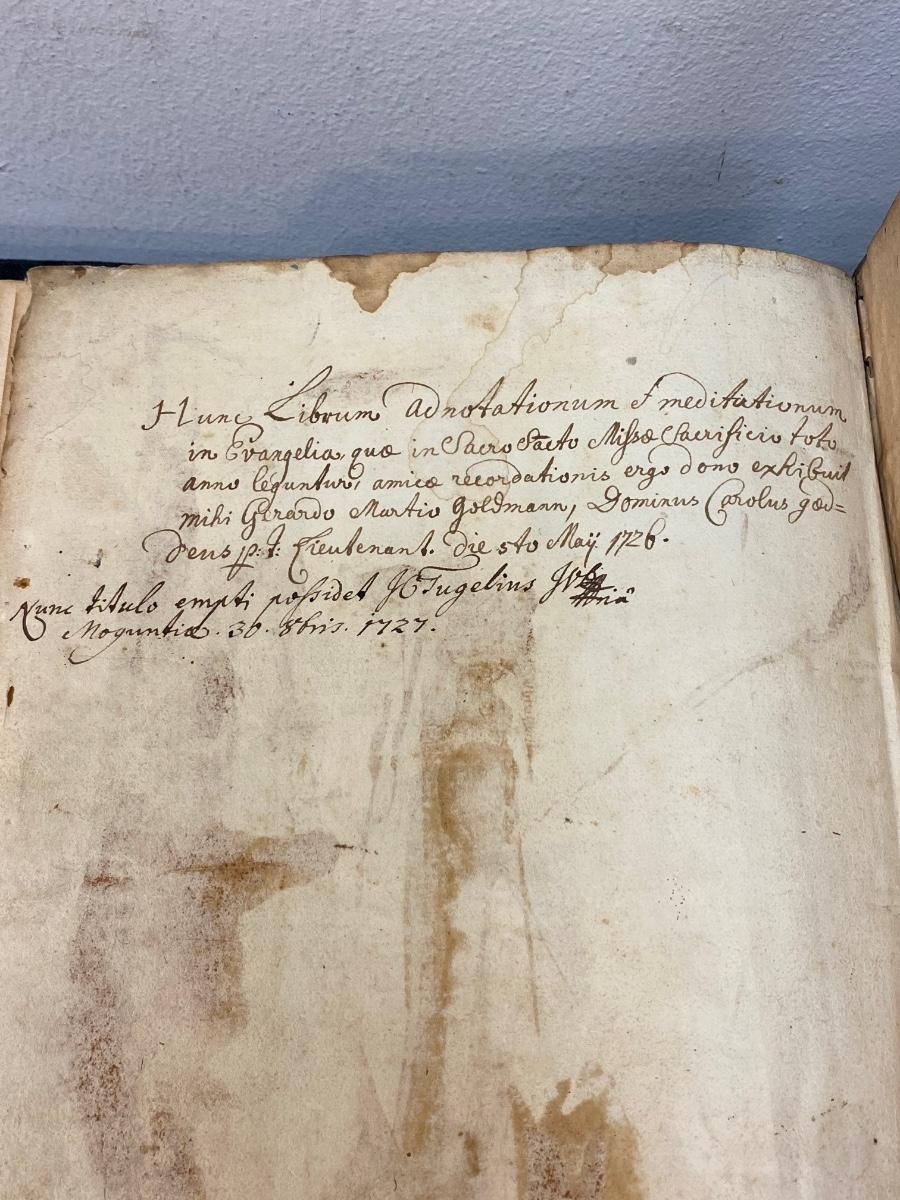 Hunc Librum adnotationum & meditationum
in Evangelia, quæ in Sacro Sãcto Missæ Sacrificio toto
anno leguntur, amicæ recordationis ergo dono exhibuit
mihi Gerardo Martio Goldmann, Dominus Carolus Gæd=
deus p:t: Lieutenant. die 5to Maÿ 1726.
Nunc titulo empti possidet JC Tugelius
Moguntiæ. 30. 8bris. 1727.